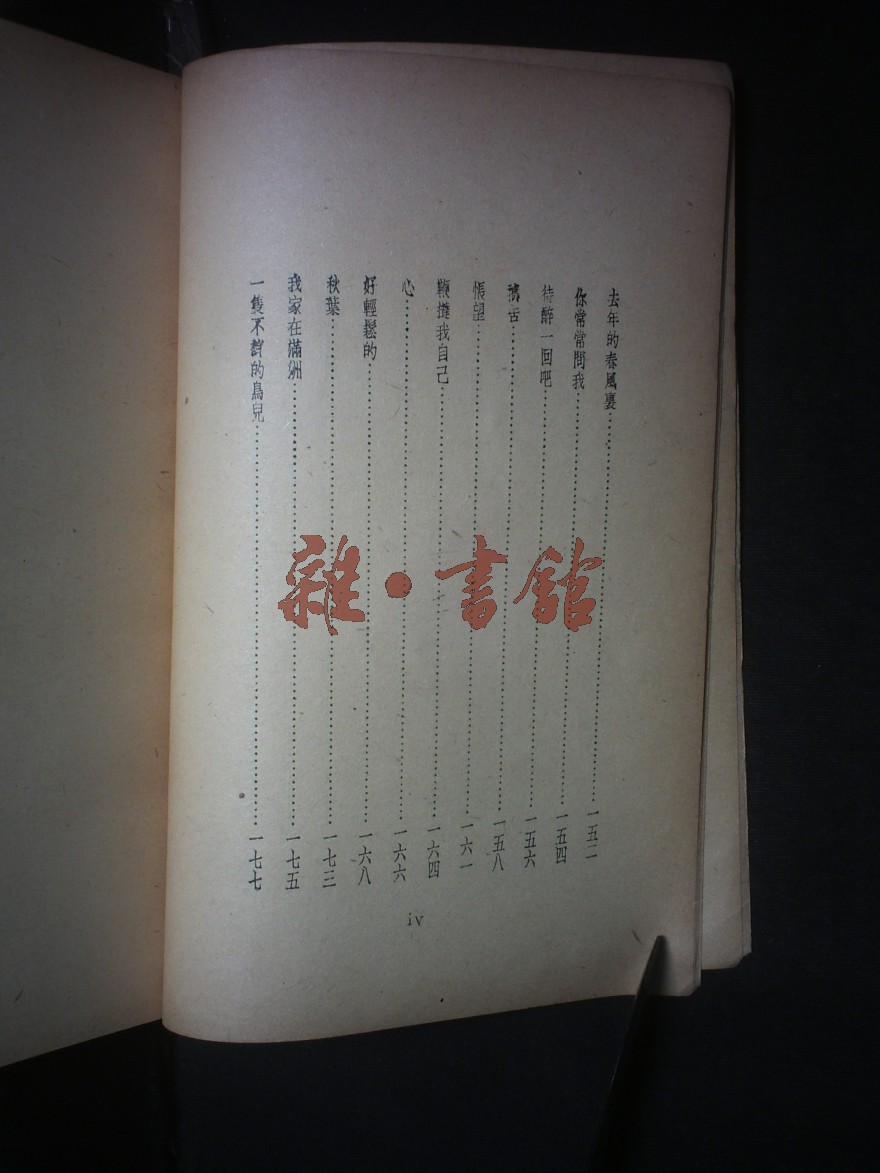 去年的春風裏……一五二
你常常問我……一五四
待醉一回吧……一五六
舌……一五八
悵望……一六一
鞭撻我自己……一六四
心……一六六
好輕鬆的……一六八
秋葉……一七三
我家在滿洲……一七五
一隻不
的鳥兒……一七七
iv
雜·書館